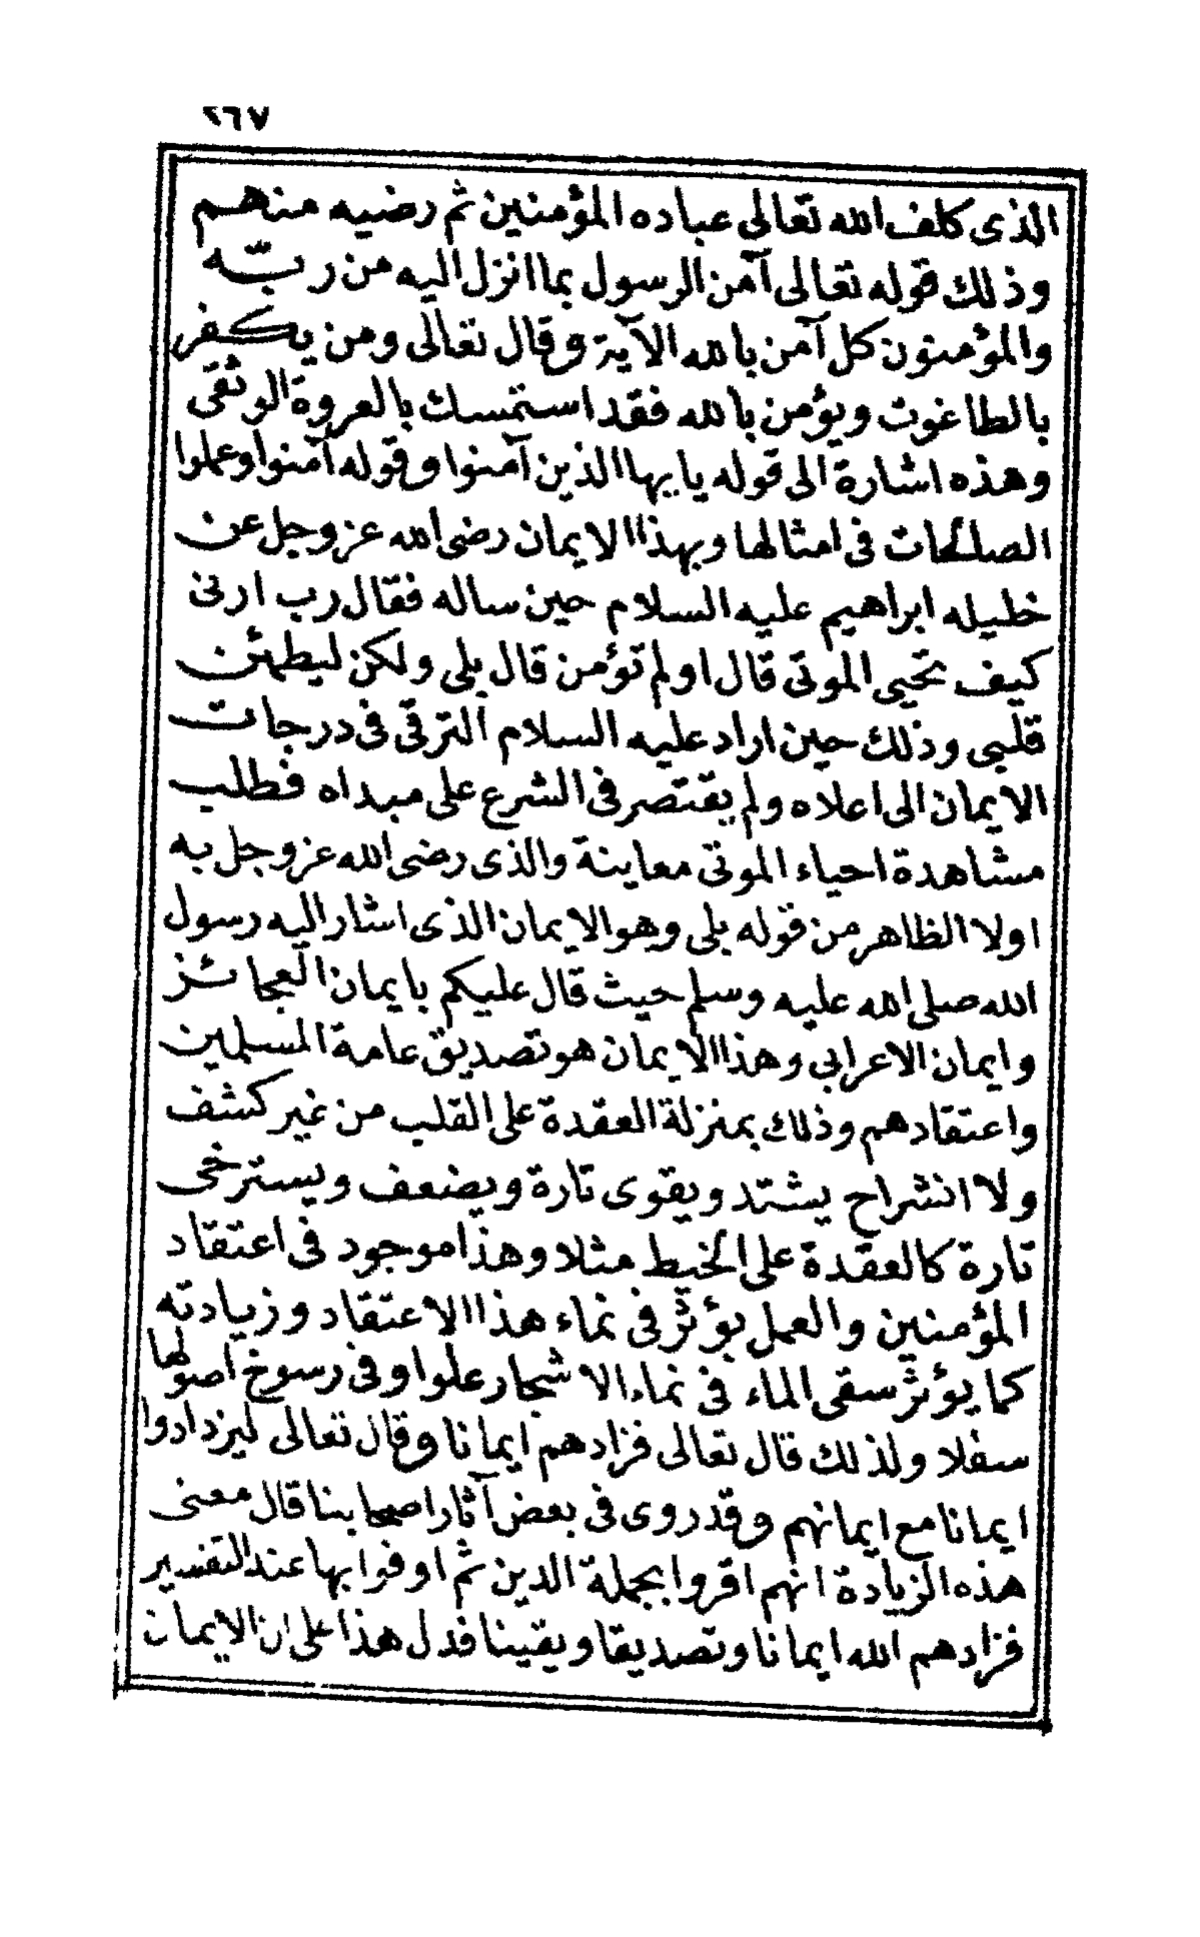 ٢٦٧
الذى كلف الله تعالى عباده المؤمنين ثم رضيه منهم
وذلك قوله تعالى آمن الرسول بما انزل اليه من ربّه
والمؤمنون كل آمن بالله الآية وقال تعالى ومن يكفر
بالطاغوت ويؤمن بالله فقد استمسك بالعروة الوثقى
وهذه اشارة الى قوله يايها الذين آمنوا وقوله آمنوا وعملوا
الصالحات فى امثالها وبهذا الايمان رضى الله عز وجل عن
خليله ابراهيم عليه السلام حين ساله فقال رب ارنى
كيف تحيى الموتى قال اولم تؤمن قال بلى ولكن ليطمئن
قلبى وذلك حين اراد عليه السلام الترقى فى درجات
الايمان الى اعلاه ولم يقتصر فى الشرع على مبداه فطلب
مشاهدة احياء الموتى معاينة والذى رضى الله عز وجل به
اولا الظاهر من قوله بلى وهو الايمان الذى اشار اليه رسول
الله صلى الله عليه وسلم حيث قال عليكم بايمان العجائز
وايمان الاعرابى وهذا الايمان هو تصديق عامة المسلمين
واعتقادهم وذلك بمنزلة العقدة على القلب من غير كشف
ولا انشراح يشتد ويقوى تارة ويضعف ويسترخى
تارة كالعقدة على الخيط مثلا وهذا موجود فى اعتقاد
المؤمنين والعمل يؤثر فى نماء هذا الاعتقاد وزيادته
كما يؤثر سقى الماء فى نماء الاشجار علوا وفى رسوخ اصولها
سفلا ولذلك قال تعالى فزادهم ايمانا وقال تعالى ليزدادوا
ايمانا مع ايمانهم وقد روى فى بعض آثار اصحابنا قال معنى
هذه الزيادة انهم اقروا بجملة الدين ثم اوفوا بها عند التفسير
فزادهم الله ايمانا وتصديقا ويقينا فدل هذا على ان الايمان